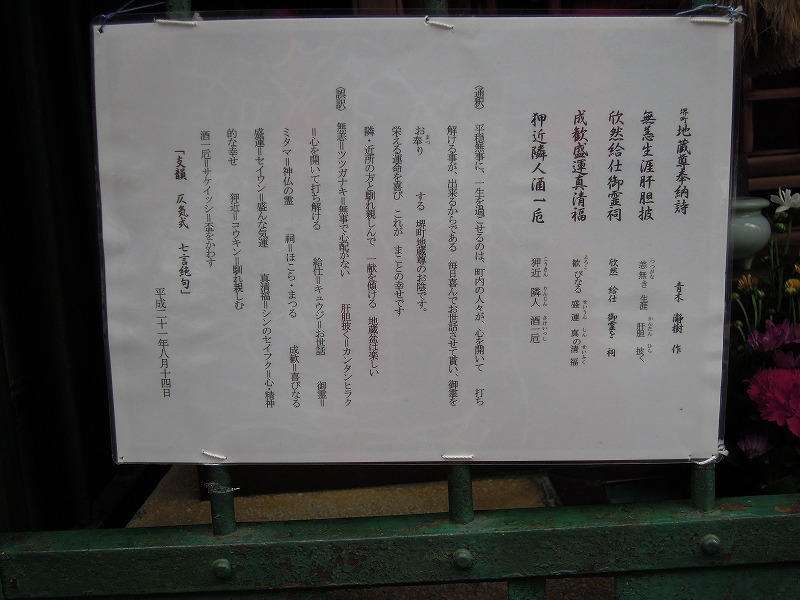 堺町 地蔵尊奉納詩
青木 瀞樹 作
無恙生涯肝胆披 恙無き 生涯 肝胆 披く
つつがな かんたん ひら
欣然給仕御霊祠 欣然 給仕 御霊を 祠
成歓盛運真清福 歓びなる 盛運 真の清福
よろこ せいうん しん せいふく
狎近隣人酒一卮 狎近 隣人 酒一卮
こうきん りんじん さけいっし
〈通釈〉 平穏無事に、一生を過ごせるのは、町内の人々が、心を開いて 打ち
解ける事が、出来るからである 毎日喜んでお世話させて貰い、御霊を
お奉り する 堺町地蔵尊のお陰です。
まつ
栄える運命を喜び これが まことの幸せです
隣・近所の方と馴れ親しんで 一献を傾ける 地蔵盆は楽しい
〈語訳〉 無恙=ツツガナキ=無事で心配がない 肝胆披く=カンタンヒラク
=心を開いて打ち解ける 給仕=キュウジ=お世話 御霊=
ミタマ=神仏の霊 祠=ほこら・まつる 成歓=喜びなる
盛運=セイウン=盛んな気運 真清福=シンのセイフク=心・精神
的な幸せ 狎近=コウキン=馴れ親しむ
酒一卮=サケイッシ=盃をかわす
「支韻 仄気式 七言絶句」
平成二十一年八月十四日